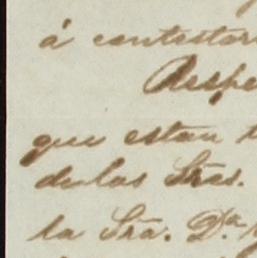 á contestar
Respe
que estan
de las Sras.
la Sra. Da.